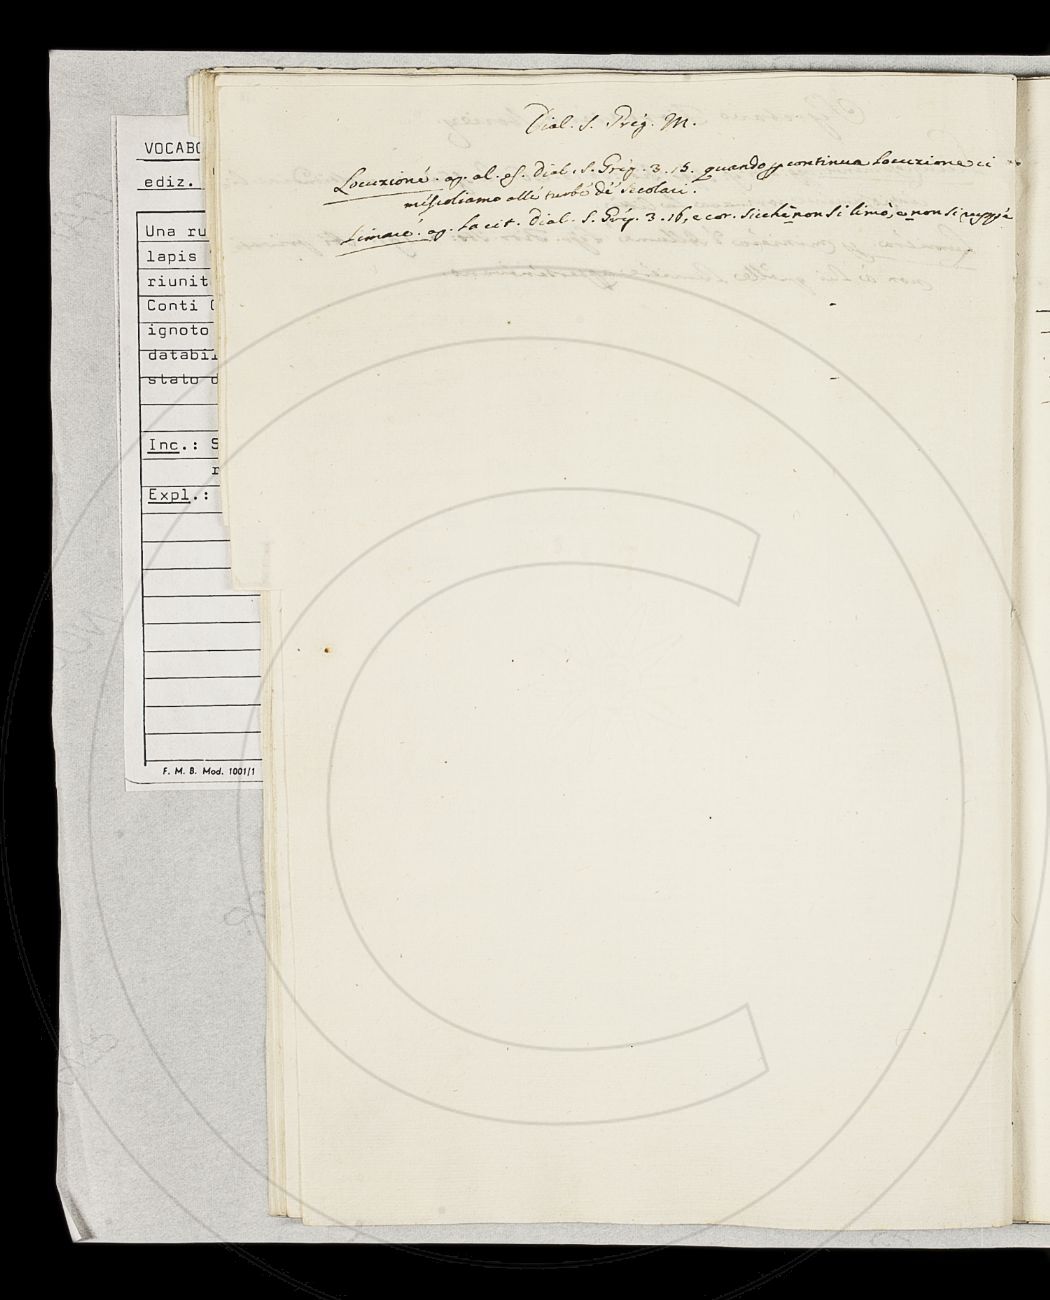 VOCABO
ediz.
Una ru
lapis
riunit
Conti
ignoto
databil
stato d
Inc.: S
r
Expl.:
F. M. B. Mod. 1001/1
Dial. S. Greg. M.
Locuzioné. ag. al. es. Dial. S. Greg. 3. 15. quando p continua Locuzione ci
méscoliamo allé turbé dé Sécolari.
Limare. ag. La cit. Dial. S. Greg. 3. 16, e cor. Sicchè non si limò, e non si